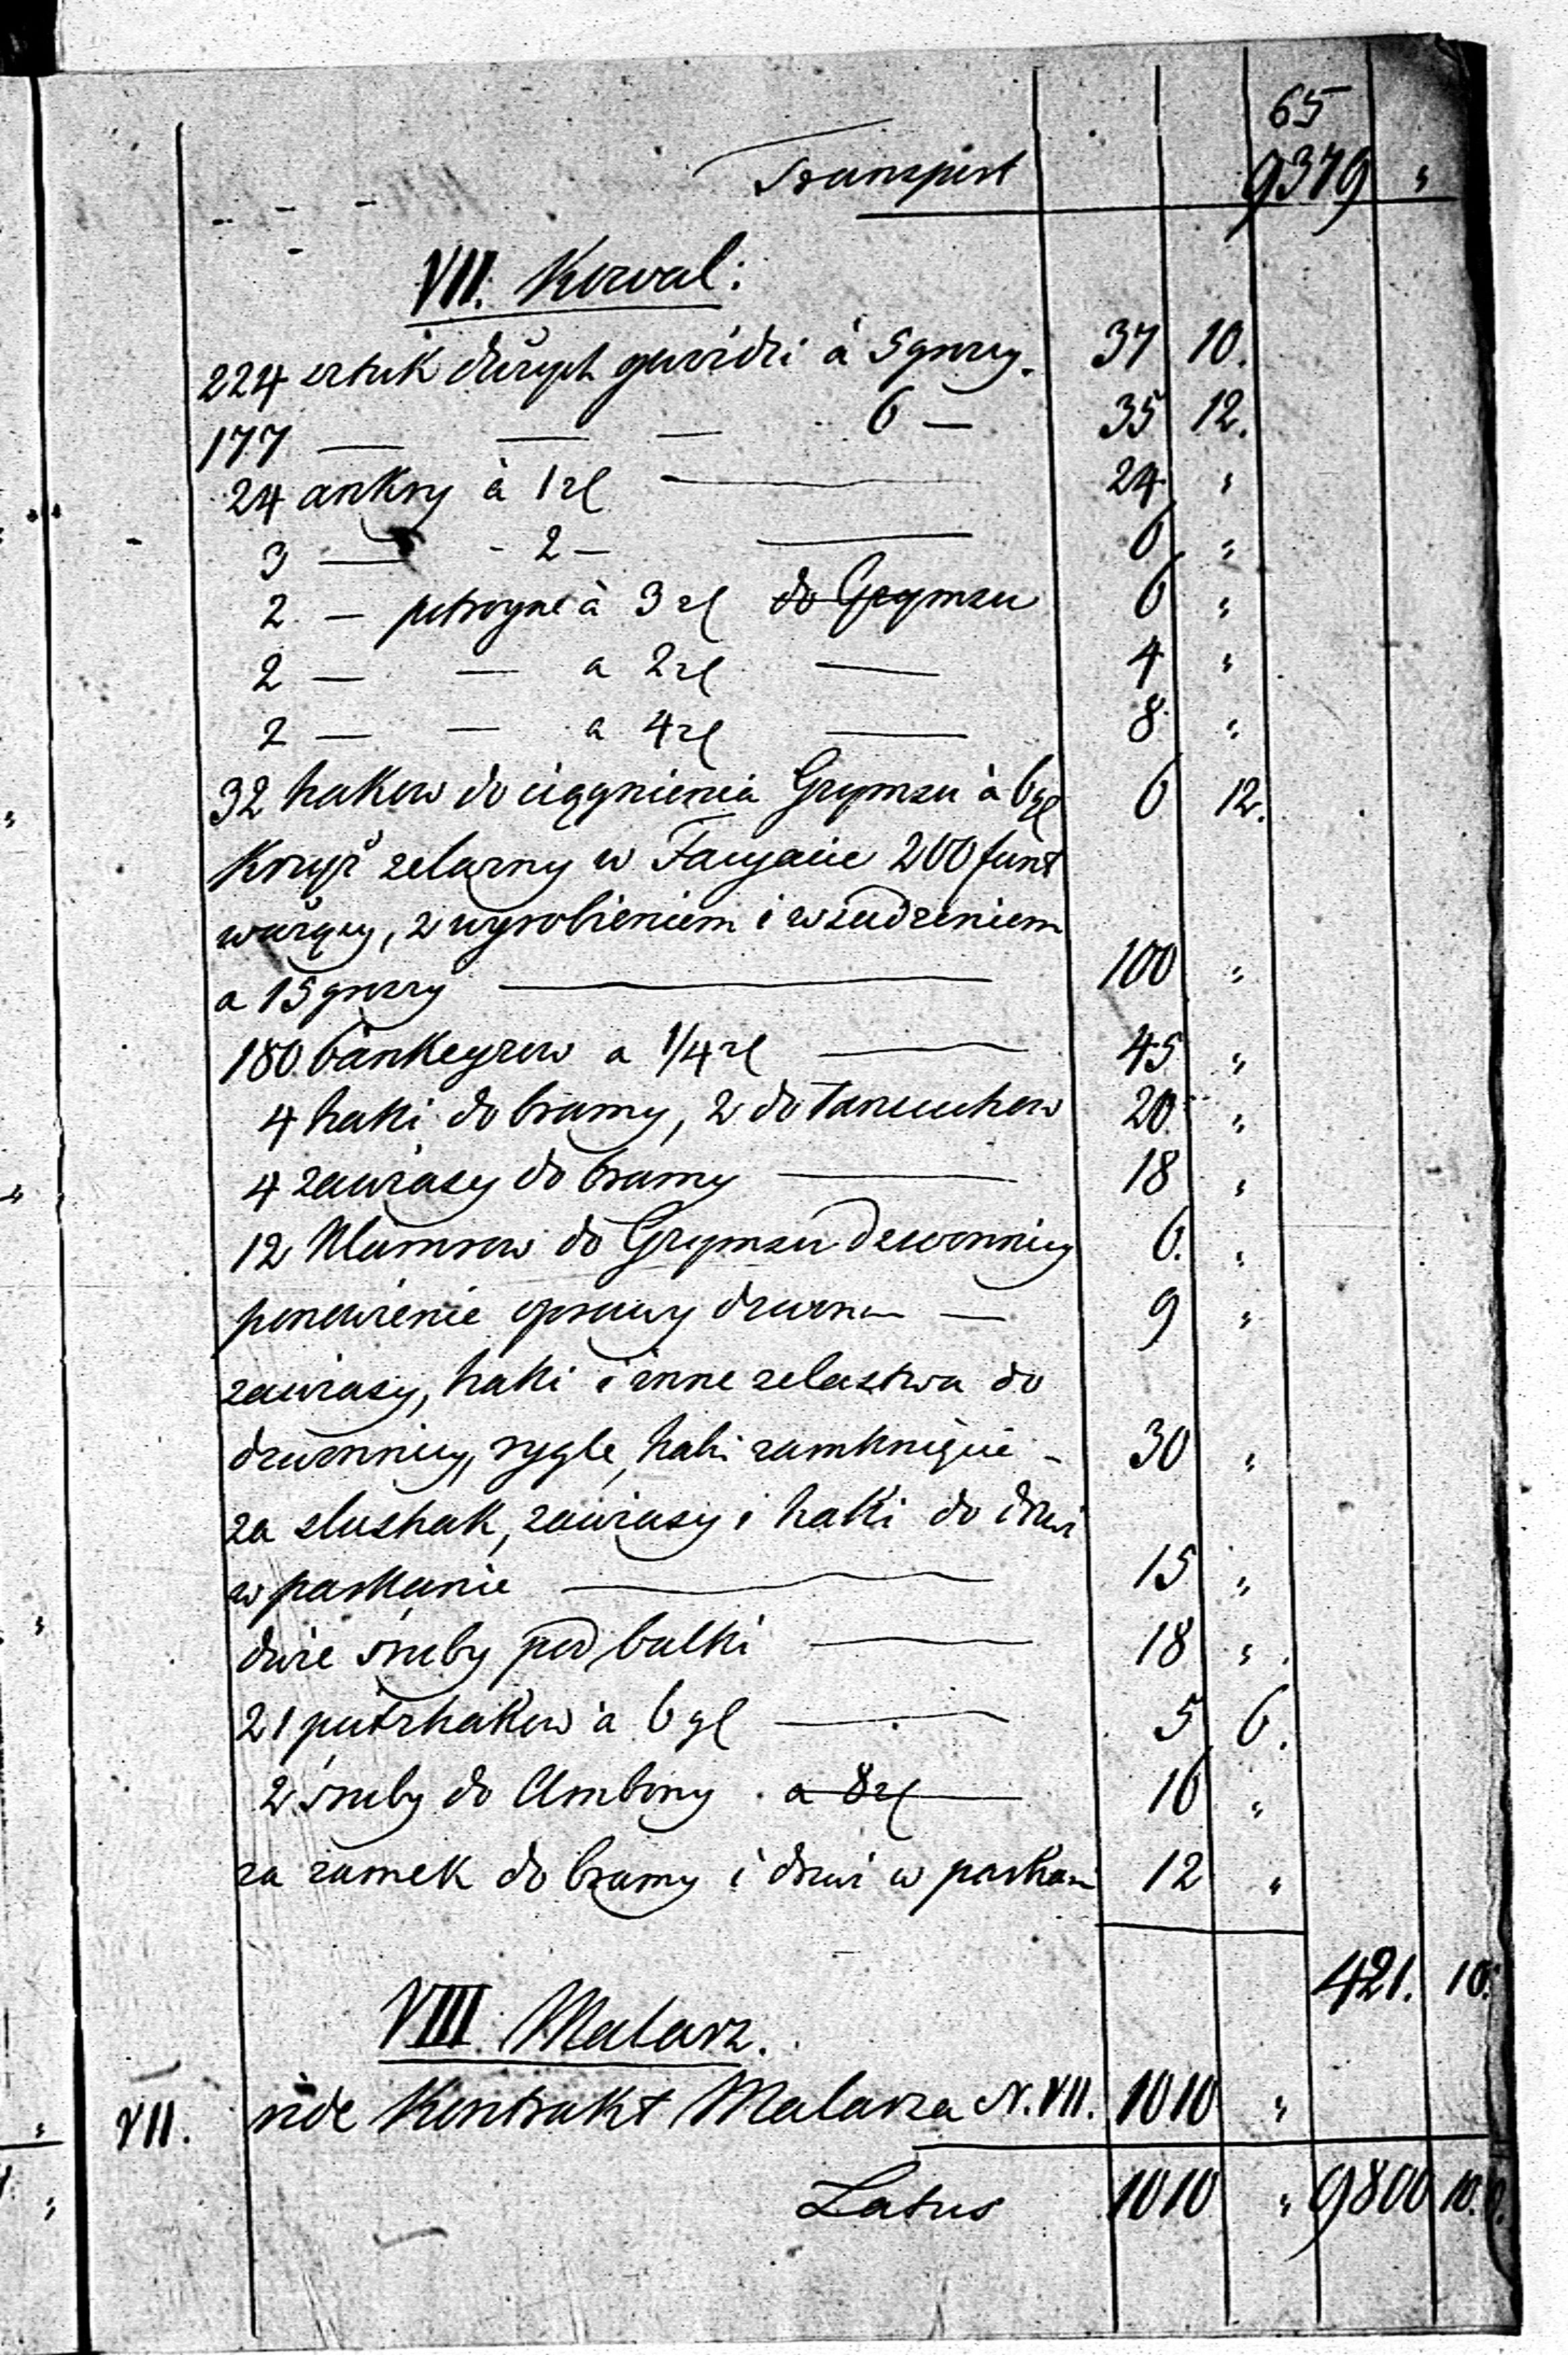 65
Transport 9379 "
VII. Kowal:
224 sztuk dużych gwoździ à 5 groszy. 37 10.
177 — — — 6 — 35 12.
24 ankry à 1 zł — 24 "
3 — - 2 — — 6 "
2 — à 3 zł do Grymsu 6 "
2 — — a 2 zł — 4 "
2 — — a 4 zł — 8 "
32 hakow do ciągnienia Grymsu à 6 gl 6 12.
Krzyż zelazny w Facyacie 200 funt
ważący, z wyrobieniem i wsadzeniem
a 15 groszy — 100 "
180 bankeyzow a 1/4 zł — 45 "
4 haki do bramy, 2 do Lancuchow 20 "
4 zawiasy do bramy — 18 "
12 Klamrow do Grymsu Dzwonnicy 6. "
ponowienie oprawy dzwona — 9 "
zawiasy, haki i inne zelaztwa do
dzwonnicy, rygle, haki zamknięcie - 30 "
za slushak, zawiasy i haki do drzwi
w parkanie — 15 "
dwie sruby pod balki — 18 "
21 putzhakow a 6 gl — 5 6.
2 śruby do Ambony a 8 zł — 16 "
za zamek do bramy i drzwi w parkan 12 "
421. 10.
VIII. Malarz.
VII. vide Kontrakt Malarza N. VII. 1010 "
Latus 1010 " 9800 10.